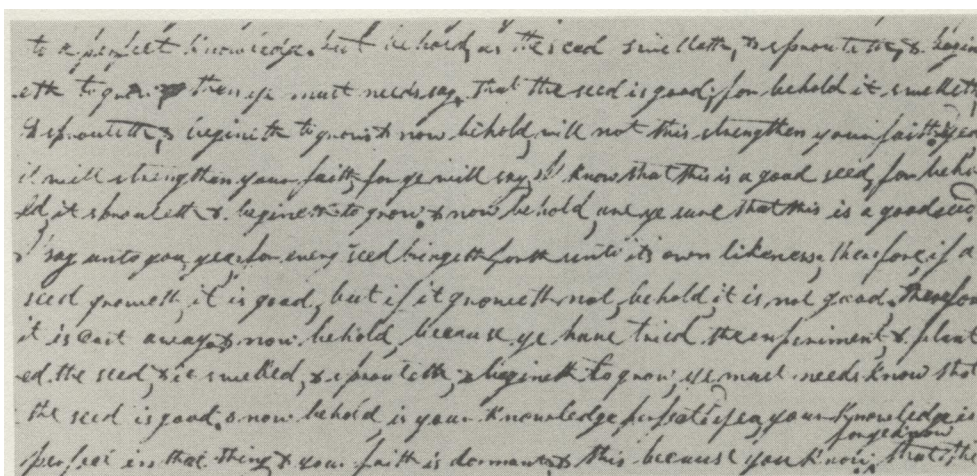 to a perfect knowledge. but behold, as the seed swelleth, & sprouteth, & begin
eth to grow then ye must needs say, that the seed is good; for behold it swelleth
& sprouteth, & beginneth to grow & now behold, will not this strengthen your faith, yea
it will strengthen your faith, for ye will say, I know that this is a good seed, for beho
ld, it sprouteth & beginneth to grow & now behold, are ye sure that this is a good seed
I say unto you, yea, for every seed bringeth forth unto its own likeness; therefore, if a
seed groweth, it is good, but if it groweth not, behold it is not good, therefore
it is cast away, & now behold, because ye have tried the experiment, & plant
ed the seed, & it swelled, & sprouteth, & beginneth to grow, ye must needs know that
the seed is good. & now behold, is your knowledge perfect yea, your knowledge is
perfect in that thing & your faith is dormant, & this because you know, for ye know that th